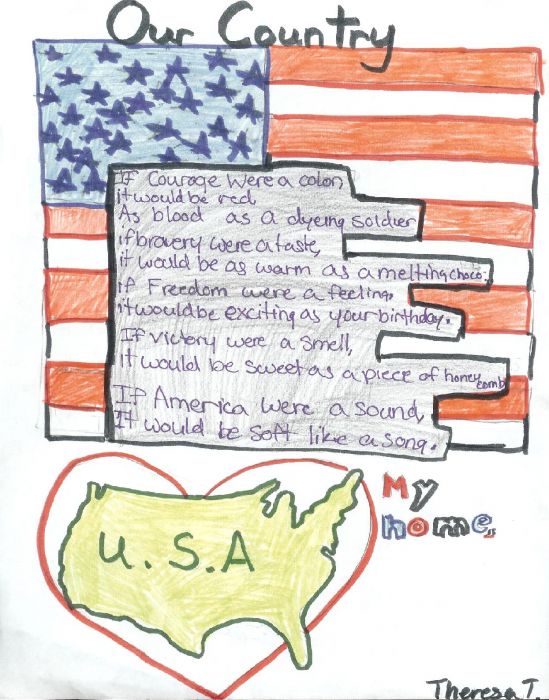 Our Country
If Courage were a color,
it would be red,
As blood as a dyeing soldier
if bravery were a taste,
it would be as warm as a melting choco.
if Freedom were a feeling,
it would be exciting as your birthday.
If victory were a smell,
it would be sweet as a piece of honeycomb
If America were a sound,
It would be soft like a song.
My
home
U.S.A
Theresa T.